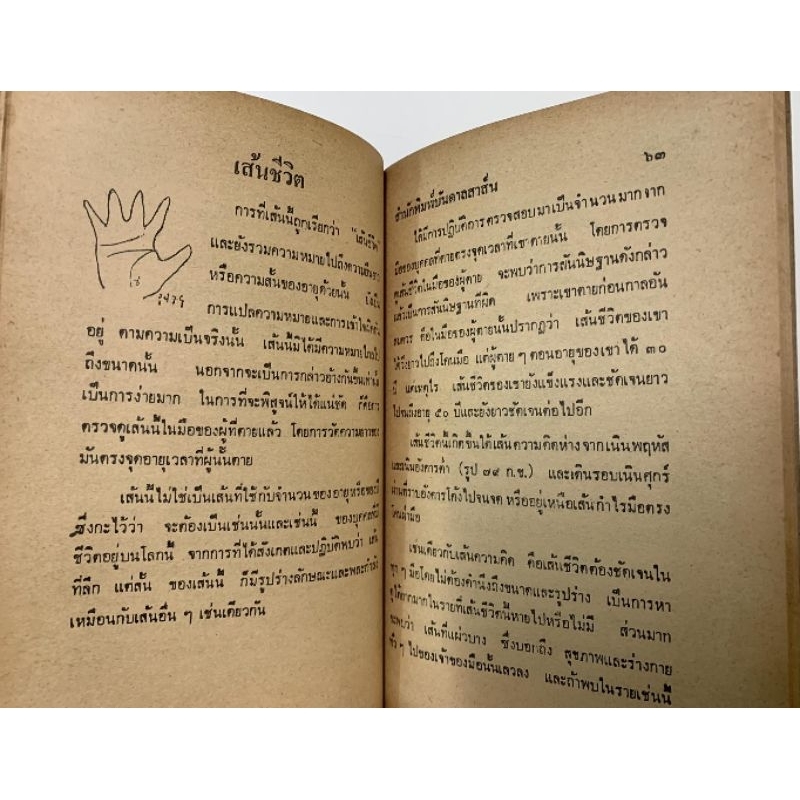 เส้นชีวิต
การที่เส้นนี้ถูกเรียกว่า "เส้นชีวิต"
และยังรวมความหมายไปถึงความยืนยาว
หรือความสั้นของอายุด้วยนั้น
การแปลความหมายและการเข้าใจ
อยู่ ตามความเป็นจริงนั้น เส้นนี้มิได้มีความหมาย
ถึงขนาดนั้น นอกจากจะเป็นการกล่าวอ้างกันขึ้นเท่านั้น
เป็นการง่ายมาก ในการที่จะพิสูจน์ให้ได้แน่ชัด ก็คือการ
ตรวจดูเส้นนี้ในมือของผู้ที่ตายแล้ว โดยการวัดความยาวของ
มันตรงจุดอายุเวลาที่ผู้นั้นตาย
เส้นนี้ไม่ใช่เป็นเส้นที่ใช้กับจำนวนของอายุหรือของปี
ซึ่งกะไว้ว่า จะต้องเป็นเช่นนั้นและเช่นนี้ ของบุคคลที่มี
ชีวิตอยู่บนโลกนี้ จากการที่ได้สังเกตและปฏิบัติพบว่า เส้น
ที่ลึก แต่สั้น ของเส้นนี้ ก็มีรูปร่างลักษณะและพละกำลัง
เหมือนกับเส้นอื่น ๆ เช่นเดียวกัน
๖๓
สำนักพิมพ์บันดาลสาส์น
ได้มีการปฏิบัติการตรวจสอบมาเป็นจำนวนมากจาก
มือของบุคคลที่ตายตรงจุดเวลาที่เขาตายนั้น โดยการตรวจ
ดูเส้นชีวิตในมือของผู้ตาย จะพบว่าการสันนิษฐานดังกล่าว
แล้วเป็นการสันนิษฐานที่ผิด เพราะเขาตายก่อนกาลอัน
สมควร คือในมือของผู้ตายนั้นปรากฏว่า เส้นชีวิตของเขา
ได้วิ่งยาวไปถึงโคนมือ แต่ผู้ตาย ๆ ตอนอายุของเขาได้ ๓๐
ปี แต่เหตุไร เส้นชีวิตของเขายังแข็งแรงและชัดเจนยาว
ไปจนถึงอายุ ๕๐ ปีและยังยาวชัดเจนต่อไปอีก
เส้นชีวิตนี้เกิดขึ้นใต้เส้นความคิดห่างจากเนินพฤหัส
และเนินอังคารต่ำ (รูป ๗๙ ก.ข.) และเดินรอบเนินศุกร์
ผ่านที่ราบอังคารโค้งไปจนจด หรืออยู่เหนือเส้นกำไรมือตรง
โคนฝ่ามือ
เช่นเดียวกับเส้นความคิด คือเส้นชีวิตต้องชัดเจนใน
ทุก ๆ มือโดยไม่ต้องคำนึงถึงขนาดและรูปร่าง เป็นการหา
ดูได้ยากมากในรายที่เส้นชีวิตนี้หายไปหรือไม่มี ส่วนมาก
จะพบว่า เส้นที่แผ่วบาง ซึ่งบอกถึง สุขภาพและร่างกาย
ทั่ว ๆ ไปของเจ้าของมือนั้นเลวลง และถ้าพบในรายเช่นนี้